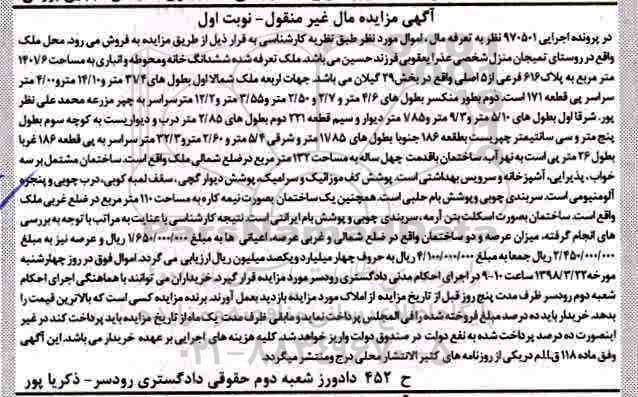 آگهی مزایده مال غیر منقول- نوبت اول
در پرونده اجرایی ۹۷۰۵۰۱ نظر به تعرفه مال ، اموال مورد نظر طبق نظریه کارشناسی به قرار ذیل از طریق مزایده به فروش می رود. محل ملک
واقع در روستای تمیجان منزل شخصی عذرا یعقوبی فرزند حسین می باشد. ملک تعرفه شده ششدانگ خانه ومحوطه و انباری به مساحت ۱۴۰۱/۶
متر مربع به پلاک ۶۱۶ فرعی از۵ اصلی واقع در بخش۲۹ گیلان می باشد. جهات اربعه ملک شمالا اول بطول های ۳۷/۴ متر و۱۰/۱۴ مترو۴/۰۰ متر
سراسر پی قطعه ۱۷۱ است. دوم بطور منکسر بطول های ۴/۶ متر و ۲/۷ و ۲/۵۰ متر و۳/۵۵ متر و۱۲/۲ مترسراسر به چپر مزرعه محمد علی نظر
پور. شرقا اول بطول های ۵/۱۰ متر و۹/۳ متر و۷/۸۵ متر دیوار و سیم قطعه ۲۳۱ دوم بطول های ۲/۸۵ متر درب و دیواریست به کوچه سوم بطول
پنج متر و سی سانتیمتر چپریست بطقعه ۱۸۶ جنوبا بطول های ۱۱/۸۵ متر و شرقی ۵/۴ متر و ۲/۶۰ مترو۳۲/۳ متر سراسر به پی قطعه ۱۸۶ غربا
بطول ۲۶ متر پی است به نهر آب. ساختمان باقدمت چهل ساله به مساحت ۱۳۲ متر مربع در ضلع شمالی ملک واقع است. ساختمان مشتمل بر سه
خواب ، پذیرایی، آشپزخانه و سرویس بهداشتی است. پوشش کف موزائیک و سرامیک، پوشش دیوار گچی ، سقف لمبه کوبی، درب چوبی و پنجره
آلومنیومی است. سربندی چوبی و پوشش بام حلبی است. همچنین یک ساختمان بصورت نیمه کاره به مساحت ۱۱۰ متر مربع در ضلع غربی ملک
واقع است. ساختمان بصورت اسکلت بتن آرمه ، سربندی چوبی و پوشش بام ایرانتی است. نتیجه کارشناسی با عنایت به مراتب با توجه به بررسی
های انجام گرفته، میزان عرصه و دو ساختمان واقع در ضلع شمالی و غربی عرصه، اعیانی ها به مبلغ ۱/۶۵۰/۰۰۰/۰۰۰ ریال و عرصه نیز به مبلغ
۲/۴۵۰/۰۰۰/۰۰۰ ریال جمعا به مبلغ ۴/۱۰۰/۰۰۰/۰۰۰ ریال به حروف چهار میلیارد ویکصد میلیون ریال ارزیابی می گردد. اموال فوق در روز چهارشنبه
مورخه ۱۳۹۸/۳/۲۲ ساعت ۱۰-۹ در اجرای احکام مدنی دادگستری رودسر مورد مزایده قرار گیرد. خریداران می توانند با هماهنگی اجرای احکام
شعبه دوم رودسر ظرف مدت پنج روز قبل از تاریخ مزایده از املاک مورد مزایده بازدید بعمل آورند. برنده مزایده کسی است که بالاترین قیمت را
بدهد. خریدار باید ده درصد مبلغ فروخته شده را فی المجلس پرداخت نماید و مابقی ظرف مدت یک ماه از تاریخ مزایده باید پرداخت کند در غیر
اینصورت ده درصد پرداخت شده به نفع دولت در صندوق دولت واریز خواهد شد. کلیه هزینه های اجرایی بر عهده خریدار می باشد. این آگهی
وفق ماده ۱۱۸ ق.ا.ا.م در یکی از روزنامه های کثیر الانتشار محلی درج و منتشر میگردد
ح ۴۵۲ دادورز شعبه دوم حقوقی دادگستری رودسر- ذکریا پور